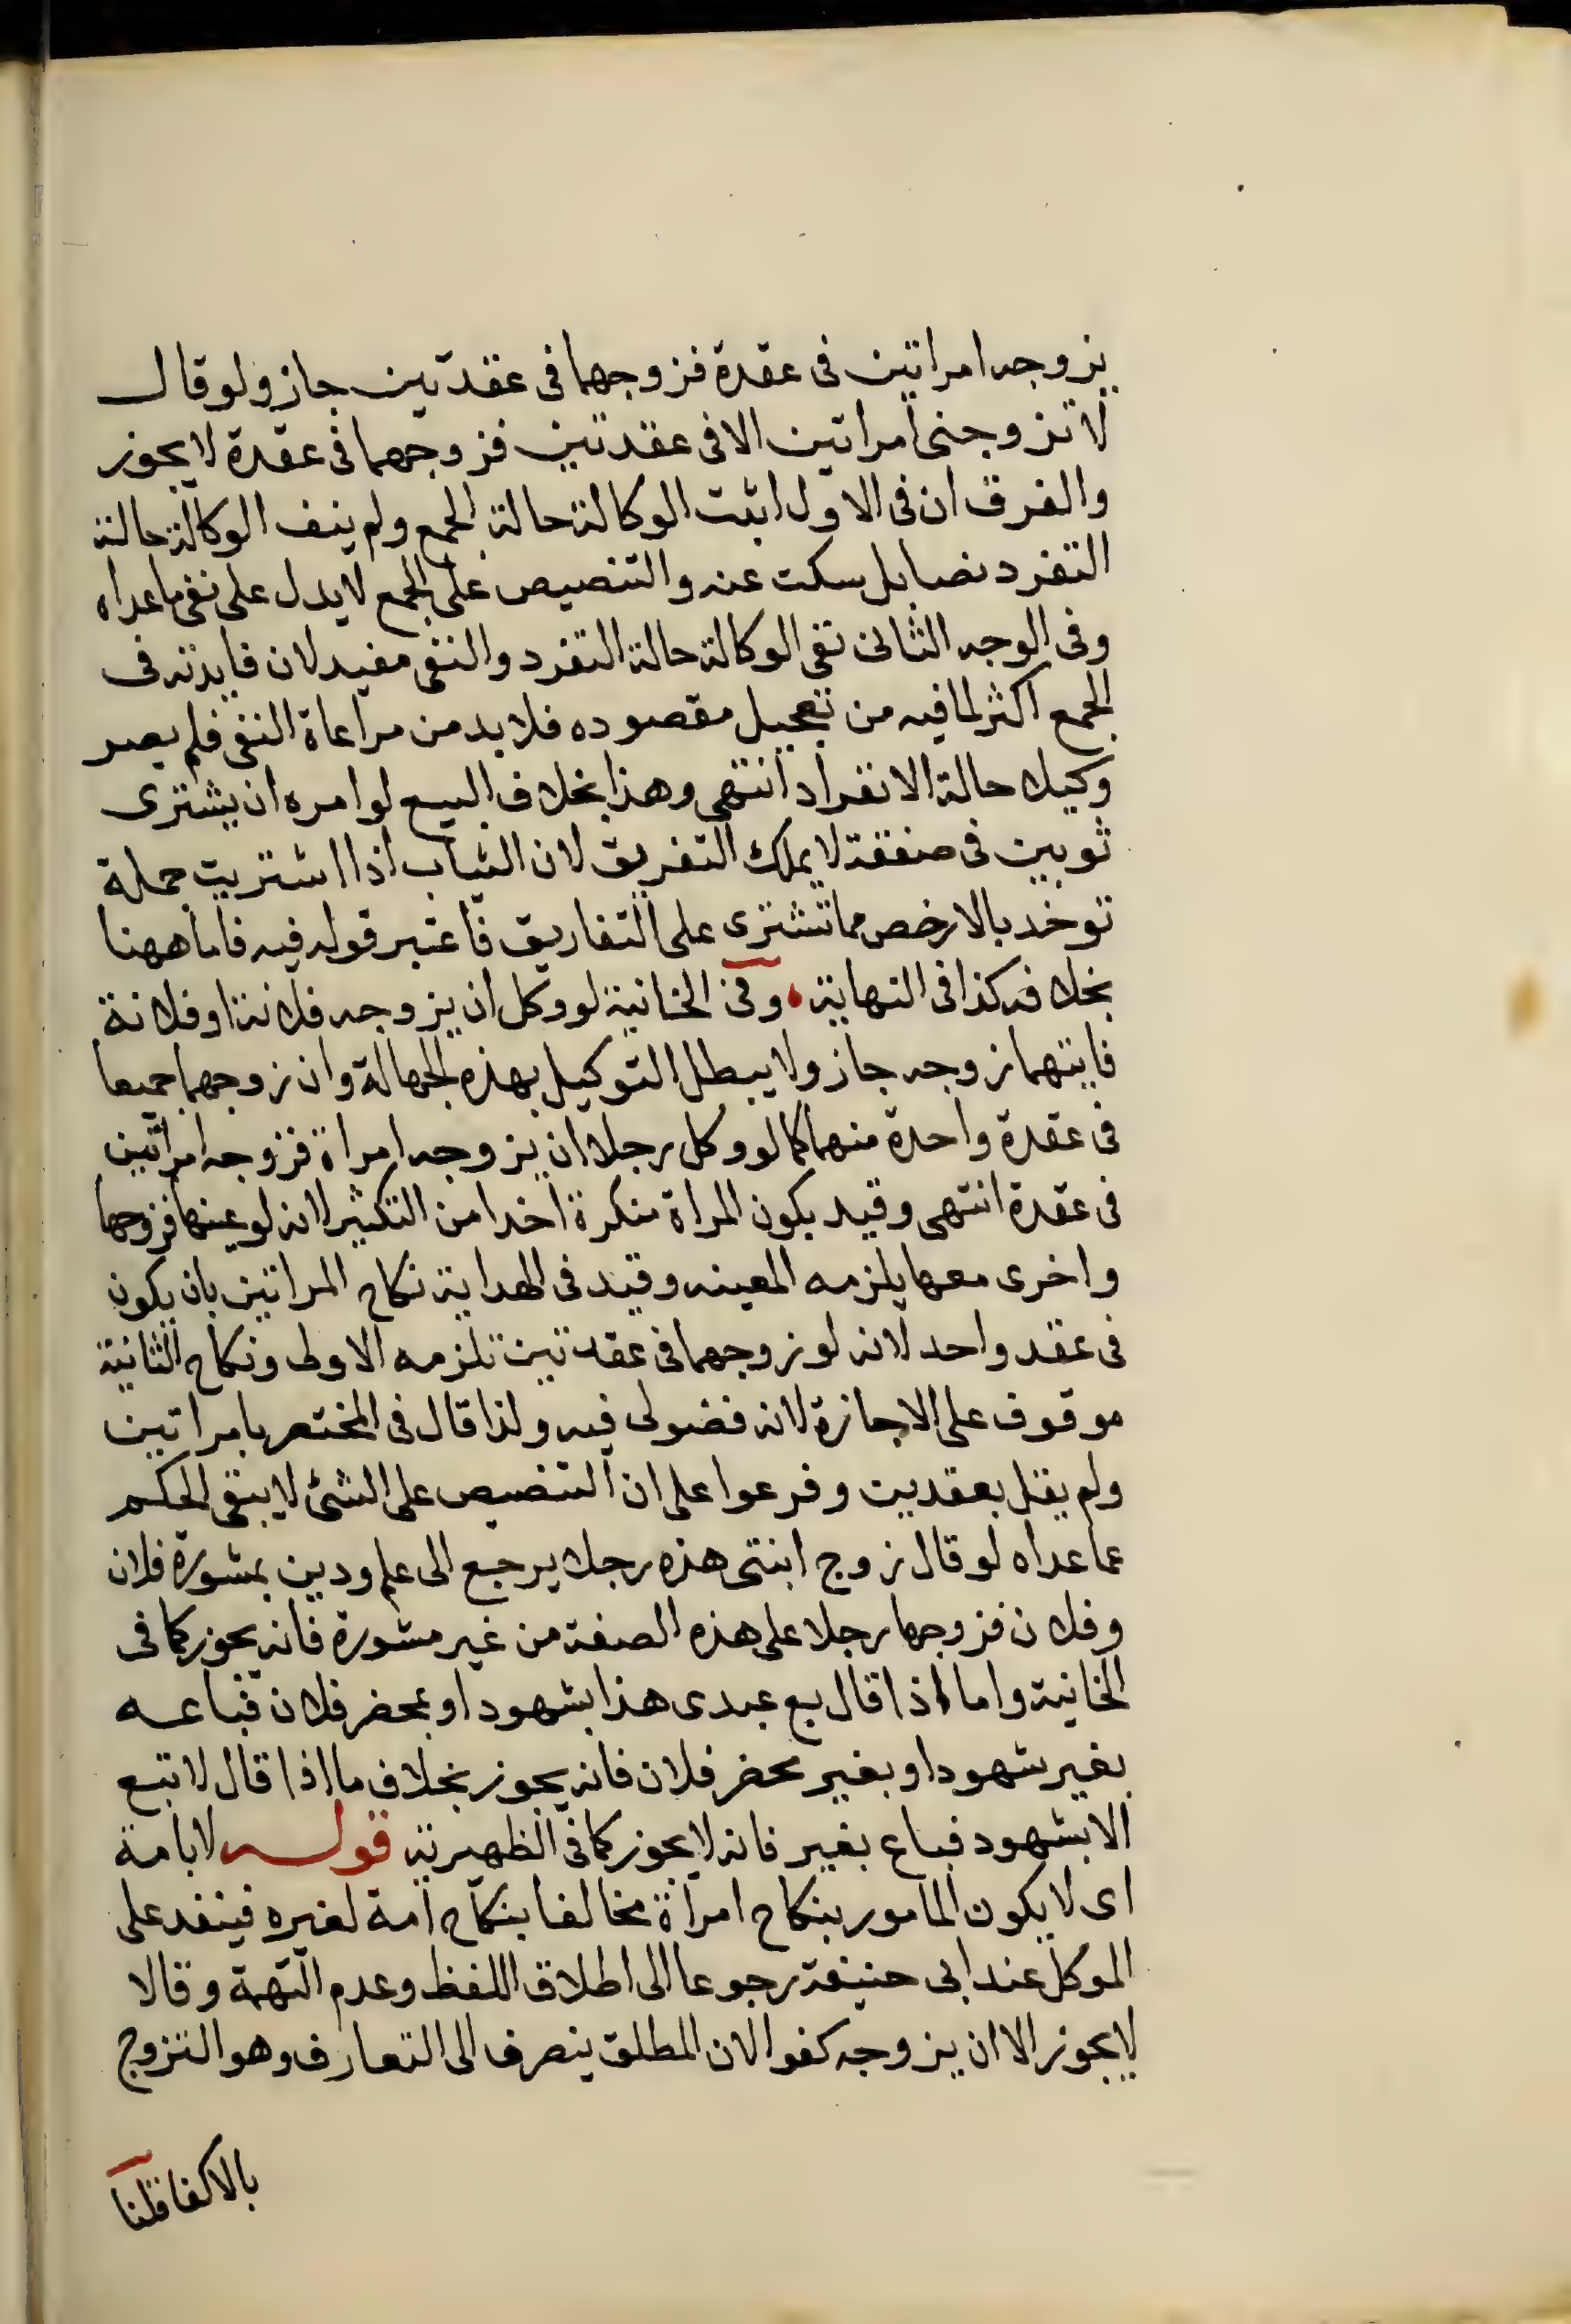 يزوجه امراتين فى عقدة فزوجهما فى عقدتين جاز ولو قال
لا تزوجنى امراتين الا فى عقدتين فزوجهما فى عقدة لا يجوز
والفرق ان فى الاول اثبت الوكالة حالة الجمع ولم ينف الوكالة حالة
التفرد نصا بل سكت عنه والتنصيص على الجمع لا يدل على نفى ما عداه
وفى الوجه الثانى نفى الوكالة حالة التفرد والنفى مفيد لان فايدته فى
الجمع اكثر لما فيه من تعجيل مقصوده فلا بد من مراعاة النفى فلم يصر
وكيلا حالة الانفراد انتهى وهذا بخلاف البيع لو امره ان يشترى
ثوبين فى صفقة لا يملك التفريق لان الثياب اذا اشتريت جملة
توخد بالارخص مما تشترى على التفاريق فاعتبر قوله فيه فاما ههنا
بخلافه كذا فى النهاية وفى الخانية لو وكل ان يزوجه فلانة او فلانة
فايتهما زوجه جاز ولا يبطل التوكيل بهذه الجهالة وان زوجهما جميعا
فى عقدة واحدة منهما كما لو وكل رجلا ان يزوجه امراة فزوجه امراتين
فى عقدة انتهى وقيد بكون المراة منكرة اخدا من التكثير لانه لو عينها فزوجها
واخرى معها يلزمه المعينه وقيد فى الهداية نكاح المراتين بان يكون
فى عقد واحد لانه لو زوجهما فى عقدتين تلزمه الاولى ونكاح الثانية
موقوف على الاجازة لانه فضولى فيه ولذا قال فى المختصر بامراتين
ولم يقل بعقدين وفرعوا على ان التنصيص على الشئ لا ينفى الحكم
عما عداه لو قال زوج ابنتى هذه رجلا يرجع الى علم ودين بمشورة فلان
وفلان فزوجها رجلا على هذه الصفة من غير مشورة فانه يجوز كما فى
الخانية واما اذا قال بع عبدى هذا بشهود او بمحضر فلان فباعه
بغير شهود او بغير محضر فلان فانه يجوز بخلاف ما اذا قال لا تبع
الا بشهود فباع بغير فانه لا يجوز كما فى الظهيرية قوله لا بامة
اى لا يكون المامور بنكاح امراة مخالفا بنكاح امة لغيره فينفد على
الموكل عند ابى حنيفة رجوعا الى اطلاق اللفظ وعدم التهمة وقالا
لا يجوز الا ان يزوجه كفوا لان المطلق ينصرف الى التعارف وهو التزوج
بالاكفا قلنا